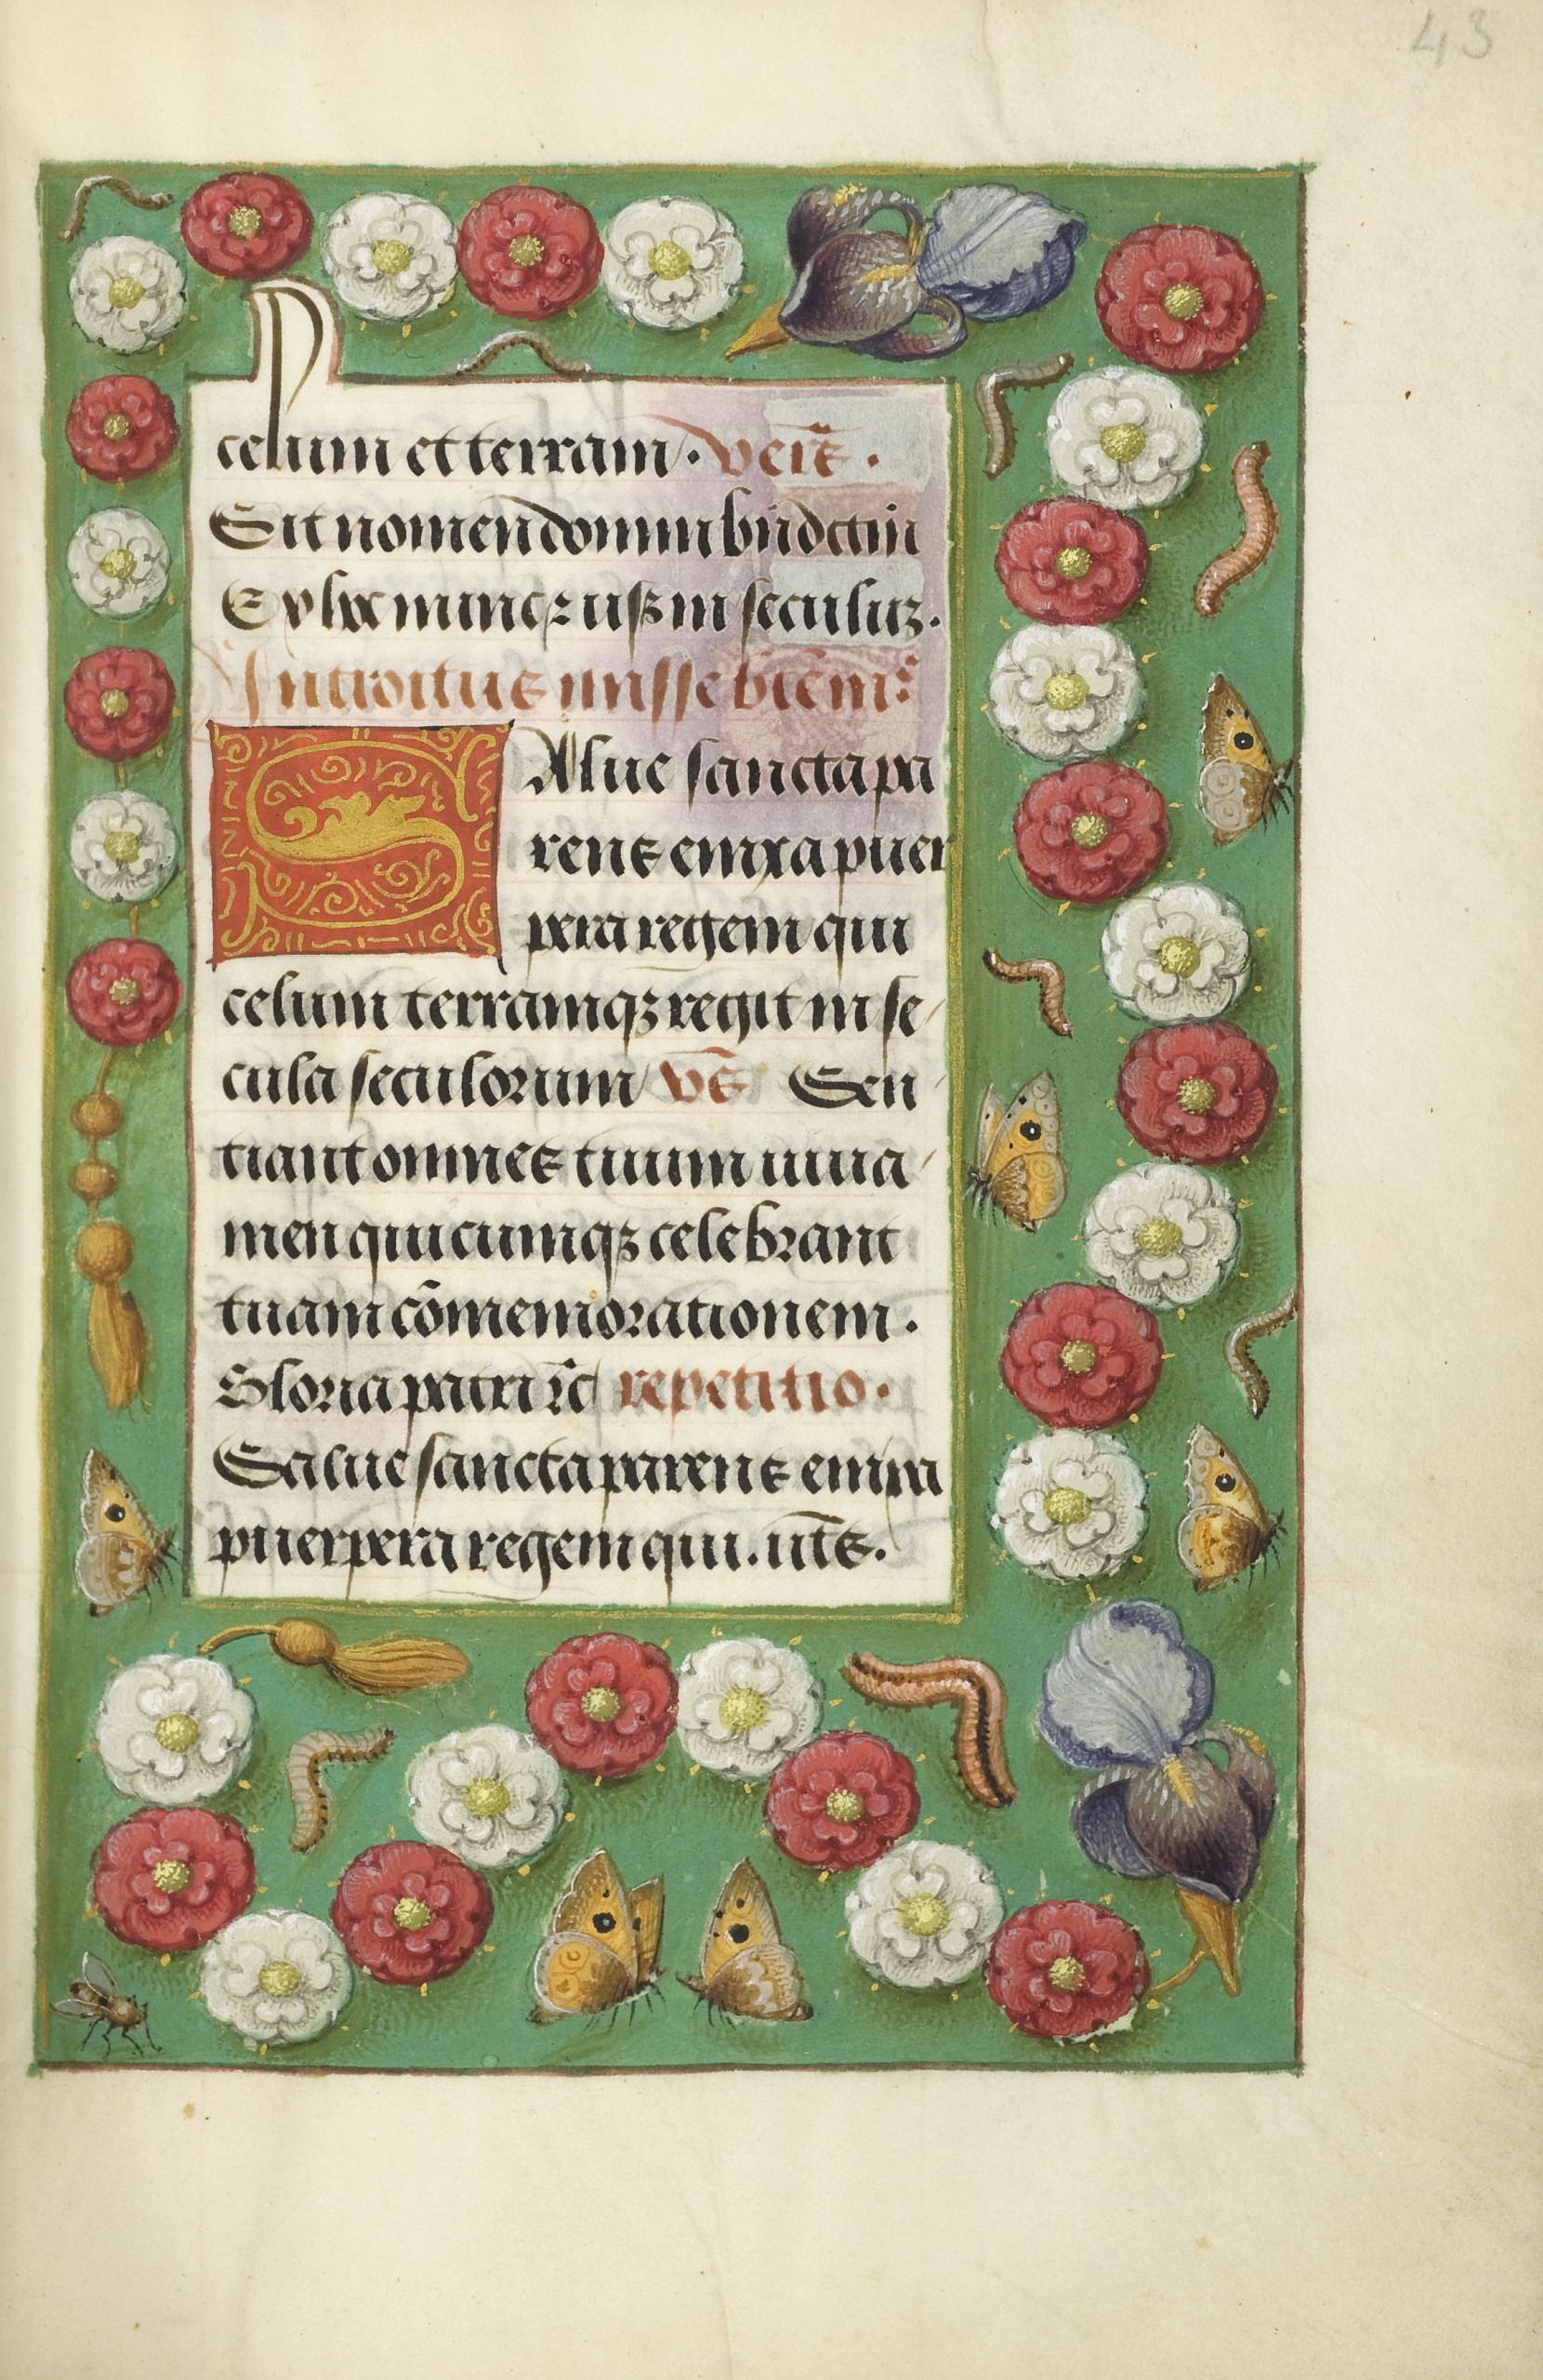 43
celum et terram · Vers̃ ·
Sit nomen domini bñdictũ
Ex hoc nunc ⁊ usq̃ in seculuꝫ ·
Introitus misse bte m̃ :
SAlue sancta pa
rens enixa puer
pera regem qui
celum terramqꝫ regit in se /
cula seculorum / Vs̃ Sen /
tiant omnes tuum iuua /
men quicumqꝫ celebrant
tuam cõmemorationem ·
Gloria patri ⁊c̃ repetitio ·
Salue sancta parens enixa
puerpera regem qui . uts̃ .